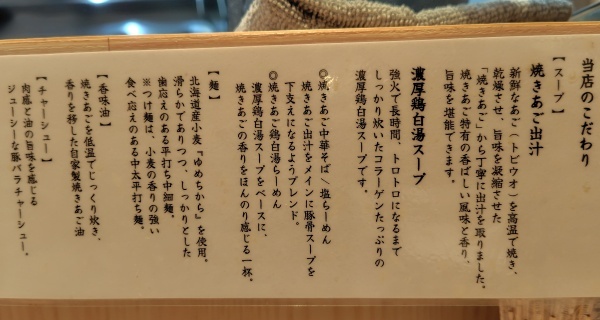 当店のこだわり
【スープ】
焼きあご出汁
新鮮なあご(トビウオ)を高温で焼き、
乾燥させ、旨味を凝縮させた
「焼きあご」から丁寧に出汁を取りました。
焼きあご特有の香ばしい風味と香り、
旨味を堪能できます。
濃厚鶏白湯スープ
強火で長時間、トロトロになるまで
しっかり炊いたコラーゲンたっぷりの
濃厚鶏白湯スープです。
◎焼きあご中華そば/塩らーめん
焼きあご出汁をメインに豚骨スープを
下支えになるようブレンド。
◎焼きあご鶏白湯らーめん
濃厚鶏白湯スープをベースに、
焼きあごの香りをほんのり感じる一杯。
【麺】
北海道産小麦『ゆめちから』を使用。
滑らかでありつつ、しっかりとした
歯応えのある平打ち中細麺。
※つけ麺は、小麦の香りの強い
食べ応えのある中太平打ち麺。
【香味油】
焼きあごを低温でじっくり炊き、
香りを移した自家製焼きあご油
【チャーシュー】
肉感と油の旨味を感じる
ジューシーな豚バラチャーシュー。